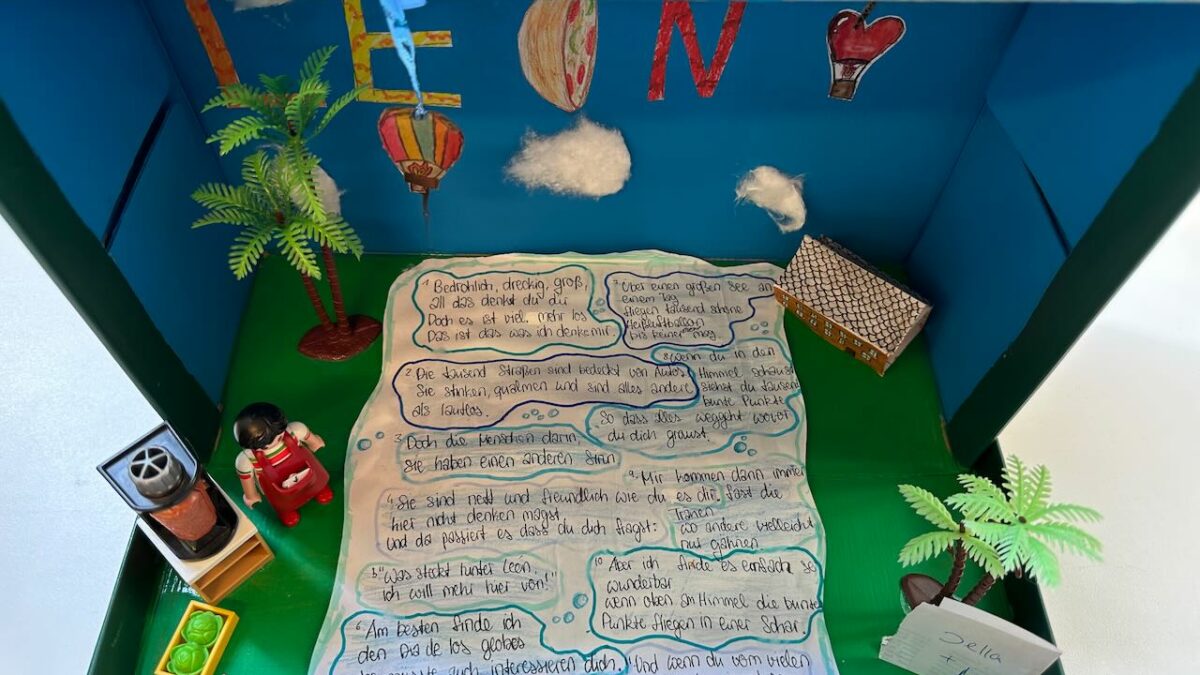 LEON
1 Bedrohlich, dreckig, groß,
all das denkst du dir
Doch es ist viel mehr los
Das ist das was ich denke mir.
2. Die tausend Straßen sind bedeckt von Autos
Sie stinken, qualmen und sind alles andere
als lautlos.
3. Doch die Menschen dann
Sie haben einen anderen Sinn
4. Sie sind nett und freundlich wie du es dir
hier nicht denken magst.
und da passiert es dass du dich fragst:
5. "Was steckt hunter León.
ich will mehr hier von!"
6. Am besten finde ich
den Dia de los globos
auch interessieren dich.
7 Über einen großen See an
einem Tag
fliegen tausend schöne
Heißluftballon
bis keiner mag
8. Wenn du in den
Himmel schaust
siehst du tausend
bunte Punkte
So dass alles weggeht wovor
du dich graust.
9. Mir kommen dann immer
fast die
Tränen
wo andere vielleicht
nur gähnen.
10 Aber ich finde es einfach so
wunderbar
wenn oben am Himmel die bunte
Punkte fliegen in einer Schar.
11 Und wenn du vom vielen
Jella
+